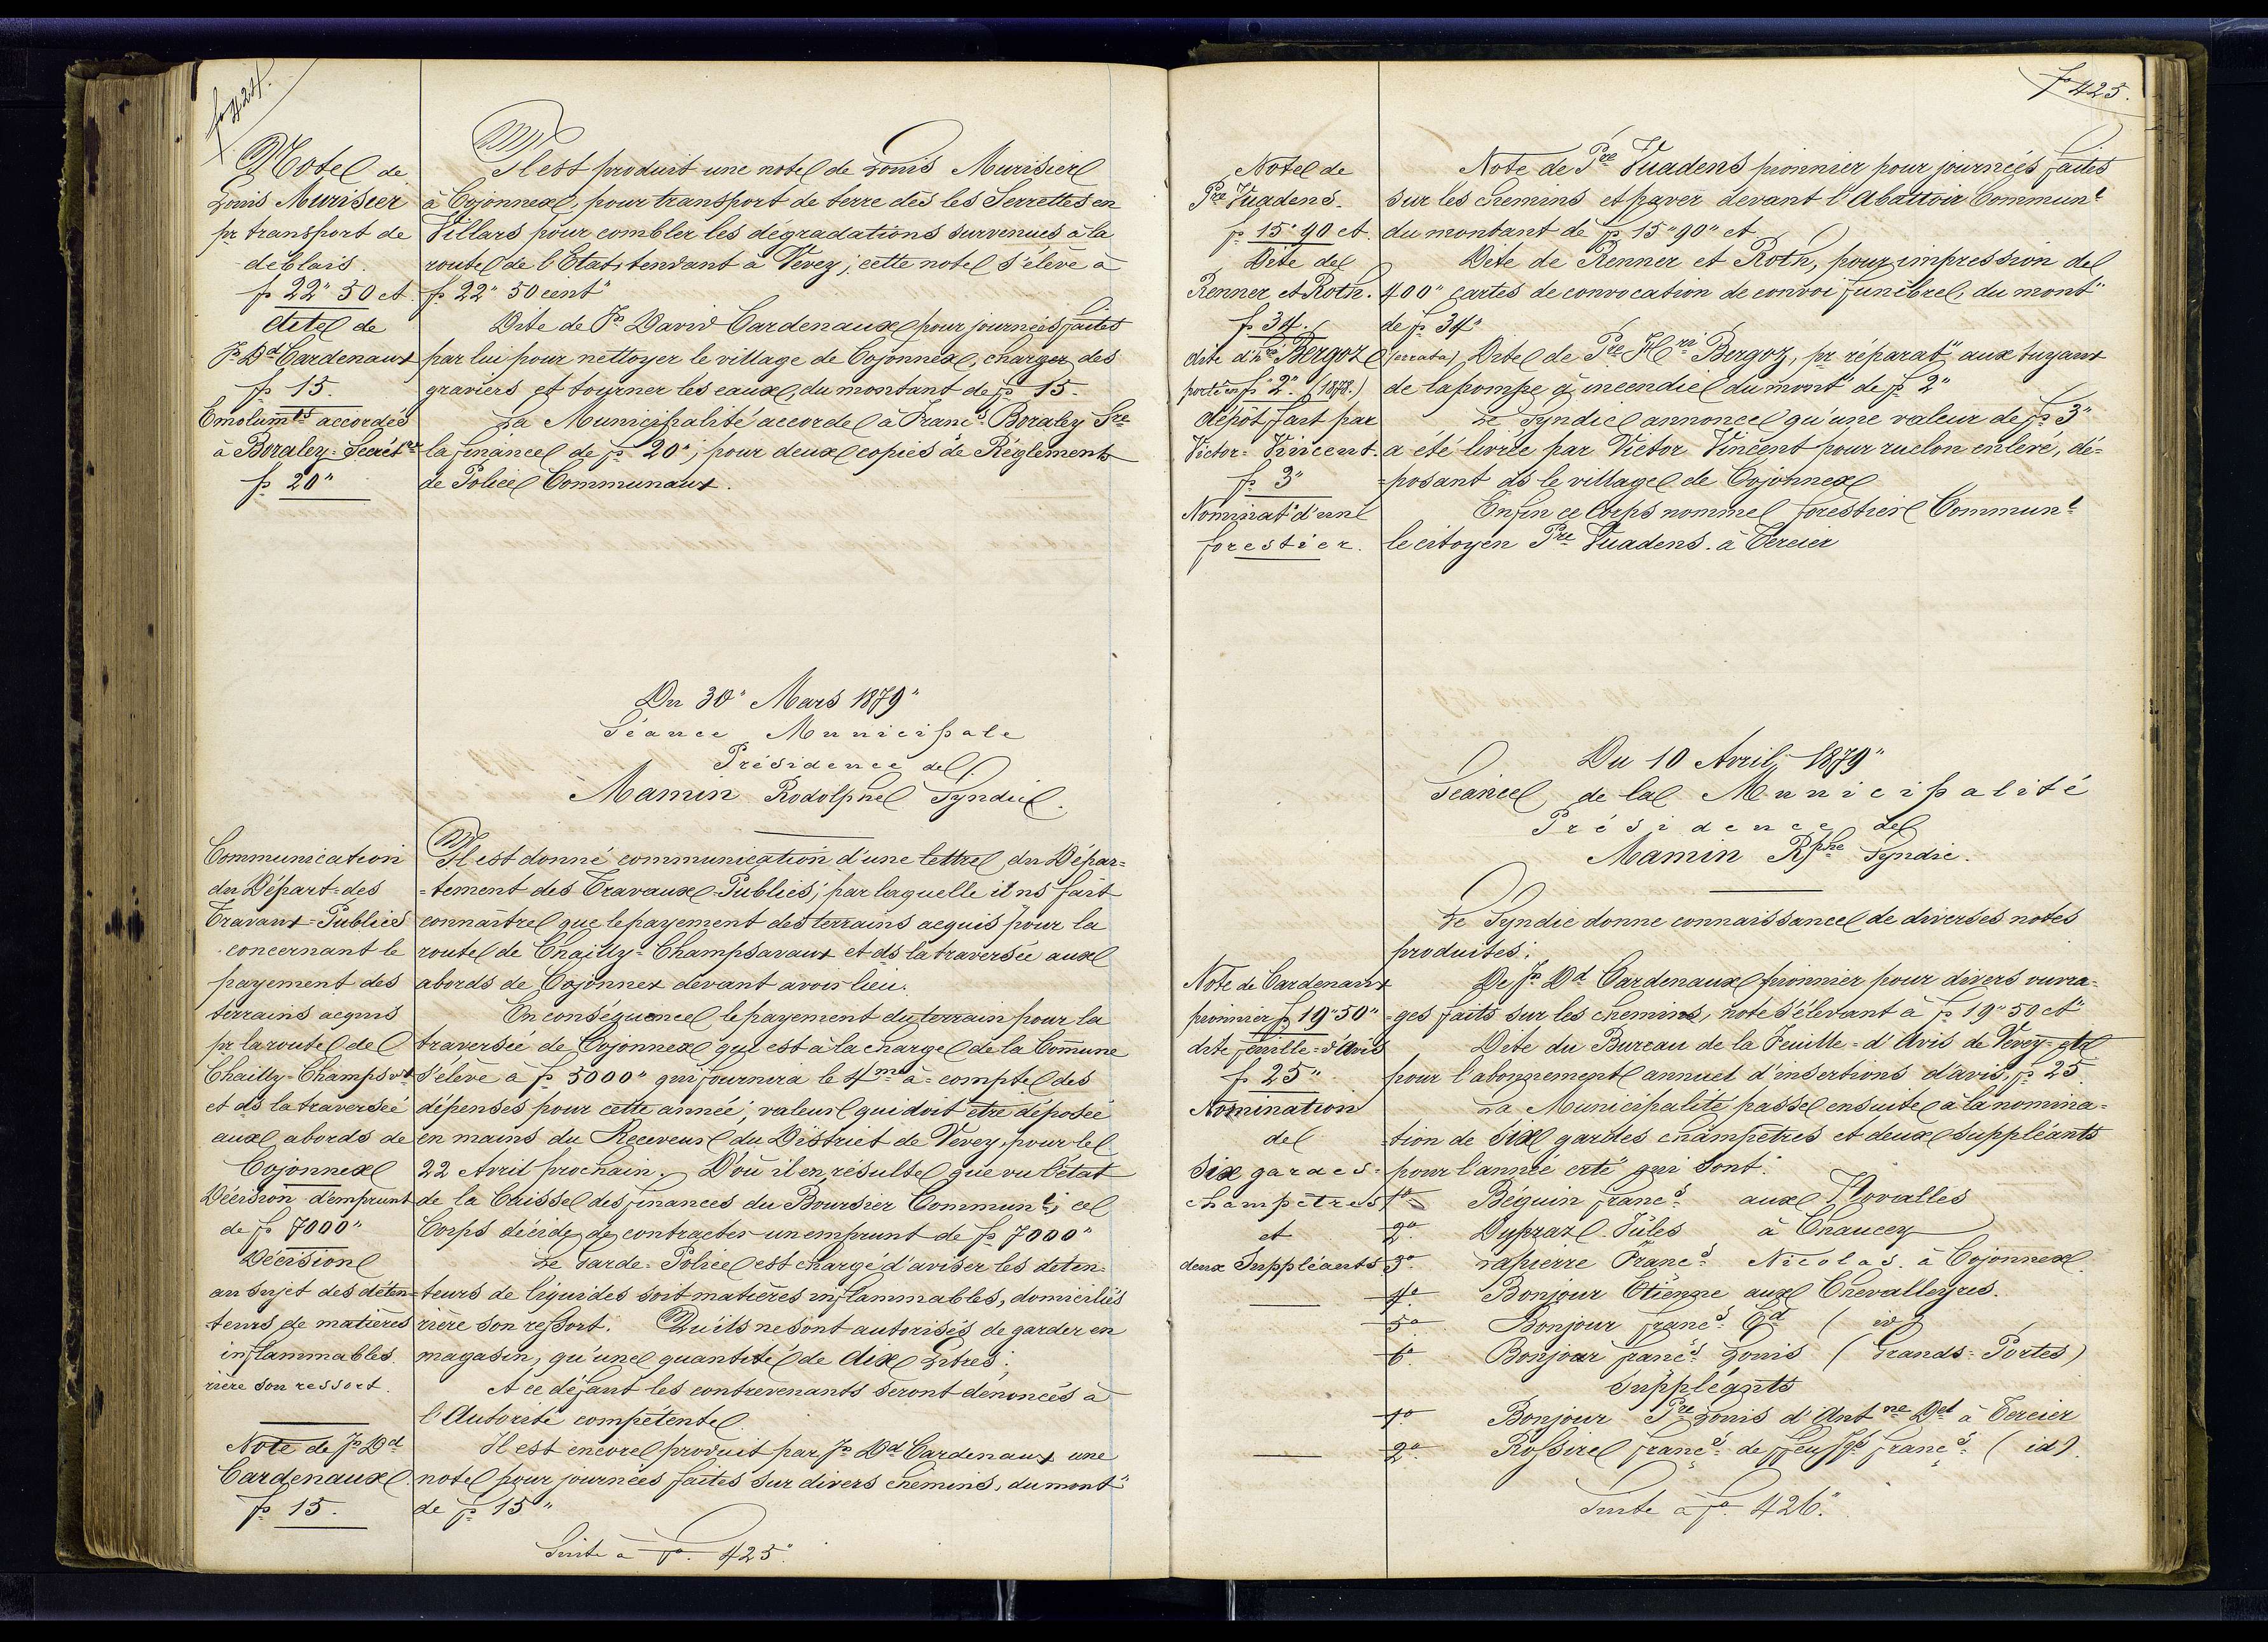 fo 424.
Note de
Louis Murisier
pr transport de
déblais.
fr 22" 50 ct
dite de
Jn Dd Cardenaux
fr 15.
Emolumts accordés
à Boraley Secrétre
fr 20"
Il est produit une note de Louis Murisier
à Cojonnex, pour transport de terre dès les Serrettes en
Villars pour combler les dégradations survenues à la
route de l'Etat tendant à Vevey; cette note s'élève à
fr 22" 50 cent"
Dite de Jn David Cardenaux pour journées faites
par lui pour nettoyer le village de Cojonnex, charger des
graviers et tourner les eaux, du montant de fr 15.
La Municipalité accorde à Francs Boraley Sre
la finance de fr 20"; pour deux copies de Réglements
de Police Communaux.
Du 30" Mars 1879"
Séance Municipale
Présidence de
Mamin Rodolphe Syndic.
Communication
du Départ= des
Travaux=Publics
concernant le
payement des
terrains acquis
pr la route de
Chailly=Champsvx
et ds la traversée
aux abords de
Cojonnex
Décision d'emprunt
de fr 7000"
Décision
au sujet des déten=
teurs de matières
inflammables
rière son ressort.
Note de Jn Dd
Cardenaux
fr 15.
Il est donné communication d'une lettre du Dépar=
=tement des Travaux=Publics, par laquelle il ns fait
connaître que le payement des terrains acquis pour la
route de Chailly=Champsavaux et ds la traversée aux
abords de Cojonnex devant avoir lieu.
En conséquence le payement du terrain pour la
traversée de Cojonnex qui est à la charge de la Comune
s'élève à fr 5000" qui fournira le 4me à=compte des
dépenses pour cette année; valeur qui doit être déposée
en mains du Receveur du District de Vevey, pour le
22 Avril prochain. D'où il en résulte que vu l'état
de la Caisse des finances du Boursier Communl; ce
Corps décide de contracter un emprunt de fr 7000"
Le Garde=Police est chargé d'aviser les déten=
teurs de liquides soit matières inflammables, domiciliés
rière son ressort. Qu'ils ne sont autorisés de garder en
magasin, qu'une quantité de dix Litres;
A ce défaut les contrevenants seront dénoncés à
l'Autorité compétente
Il est encore produit par Jn Dd Cardenaux une
note pour journées faites sur divers chemins, du mont"
de fr 15"
Suite à fo. 425"
fo 425.
Note de
Pre Vuadens.
fr 15" 90 ct.
Dite de
Renner et Roth.
fr 34.
dite d'hri Bergoz
porté en fr "2". (1878.)
dépôt fait par
Victor=Vincent.
fr 3"
Nominat" d'un
forestier.
Note de Pre Vuadens pionnier pour journées faites
sur les chemins et paver devant l'Abattoir Communl
du montant de fr 15" 90" ct
Dite de Renner et Roth, pour impression de
400" cartes de convocation de convoi funèbre, du mont"
de fr 34"
(errata) Dite de Pre Hri Bergoz, pr réparat" aux tuyaux
de la pompe à incendie du mont" de fr 2"
Le Syndic annonce qu'une valeur de fr 3"
a été livrée par Victor Vincent pour ruclon enlevé, dé=
=posant ds le village de Cojonnex
Enfin ce Corps nomme forestier Communl
le citoyen Pre Vuadens à Tercier
Du 10 Avril 1879"
Séance de la Municipalité
Présidence de
Mamin Rphe Syndic.
Le Syndic donne connaissance de diverses notes
produites;
Note de Cardenaux
pionnier fr 19" 50"
dite feuille=d'Avis
fr 25"
Nomination
de
Six gardes=
champêtres
et
deux Suppléants
De Jn Dd Cardenaux pionnier pour divers ouvra=
=ges faits sur les chemins, note s'élevant à fr 19" 50 ct"
Dite du Bureau de la Feuille=d'Avis de Vevey=
pour l'abonnement annuel d'insertions d'avis, fr 25
La Municipalité passe ensuite à la nomina=
=tion de Six gardes champêtres et deux suppléants
pour l'année crte" qui sont:
1o Béguin Francs aux Novalles
2o Dupraz Jules à Chaucey
3o Lapierre Francs Nicolas à Cojonnex
4o Bonjour Etienne aux Chevalleyres.
5o Bonjour francs Ed ( id
6o Bonjour francs Louis ( Grands=Portes)
Suppléants
1o Bonjour Pre Louis d'Antne Dd à Tercier
2o Rossire francs de ffeu Jqs francs (id)
Suite à fo 426."